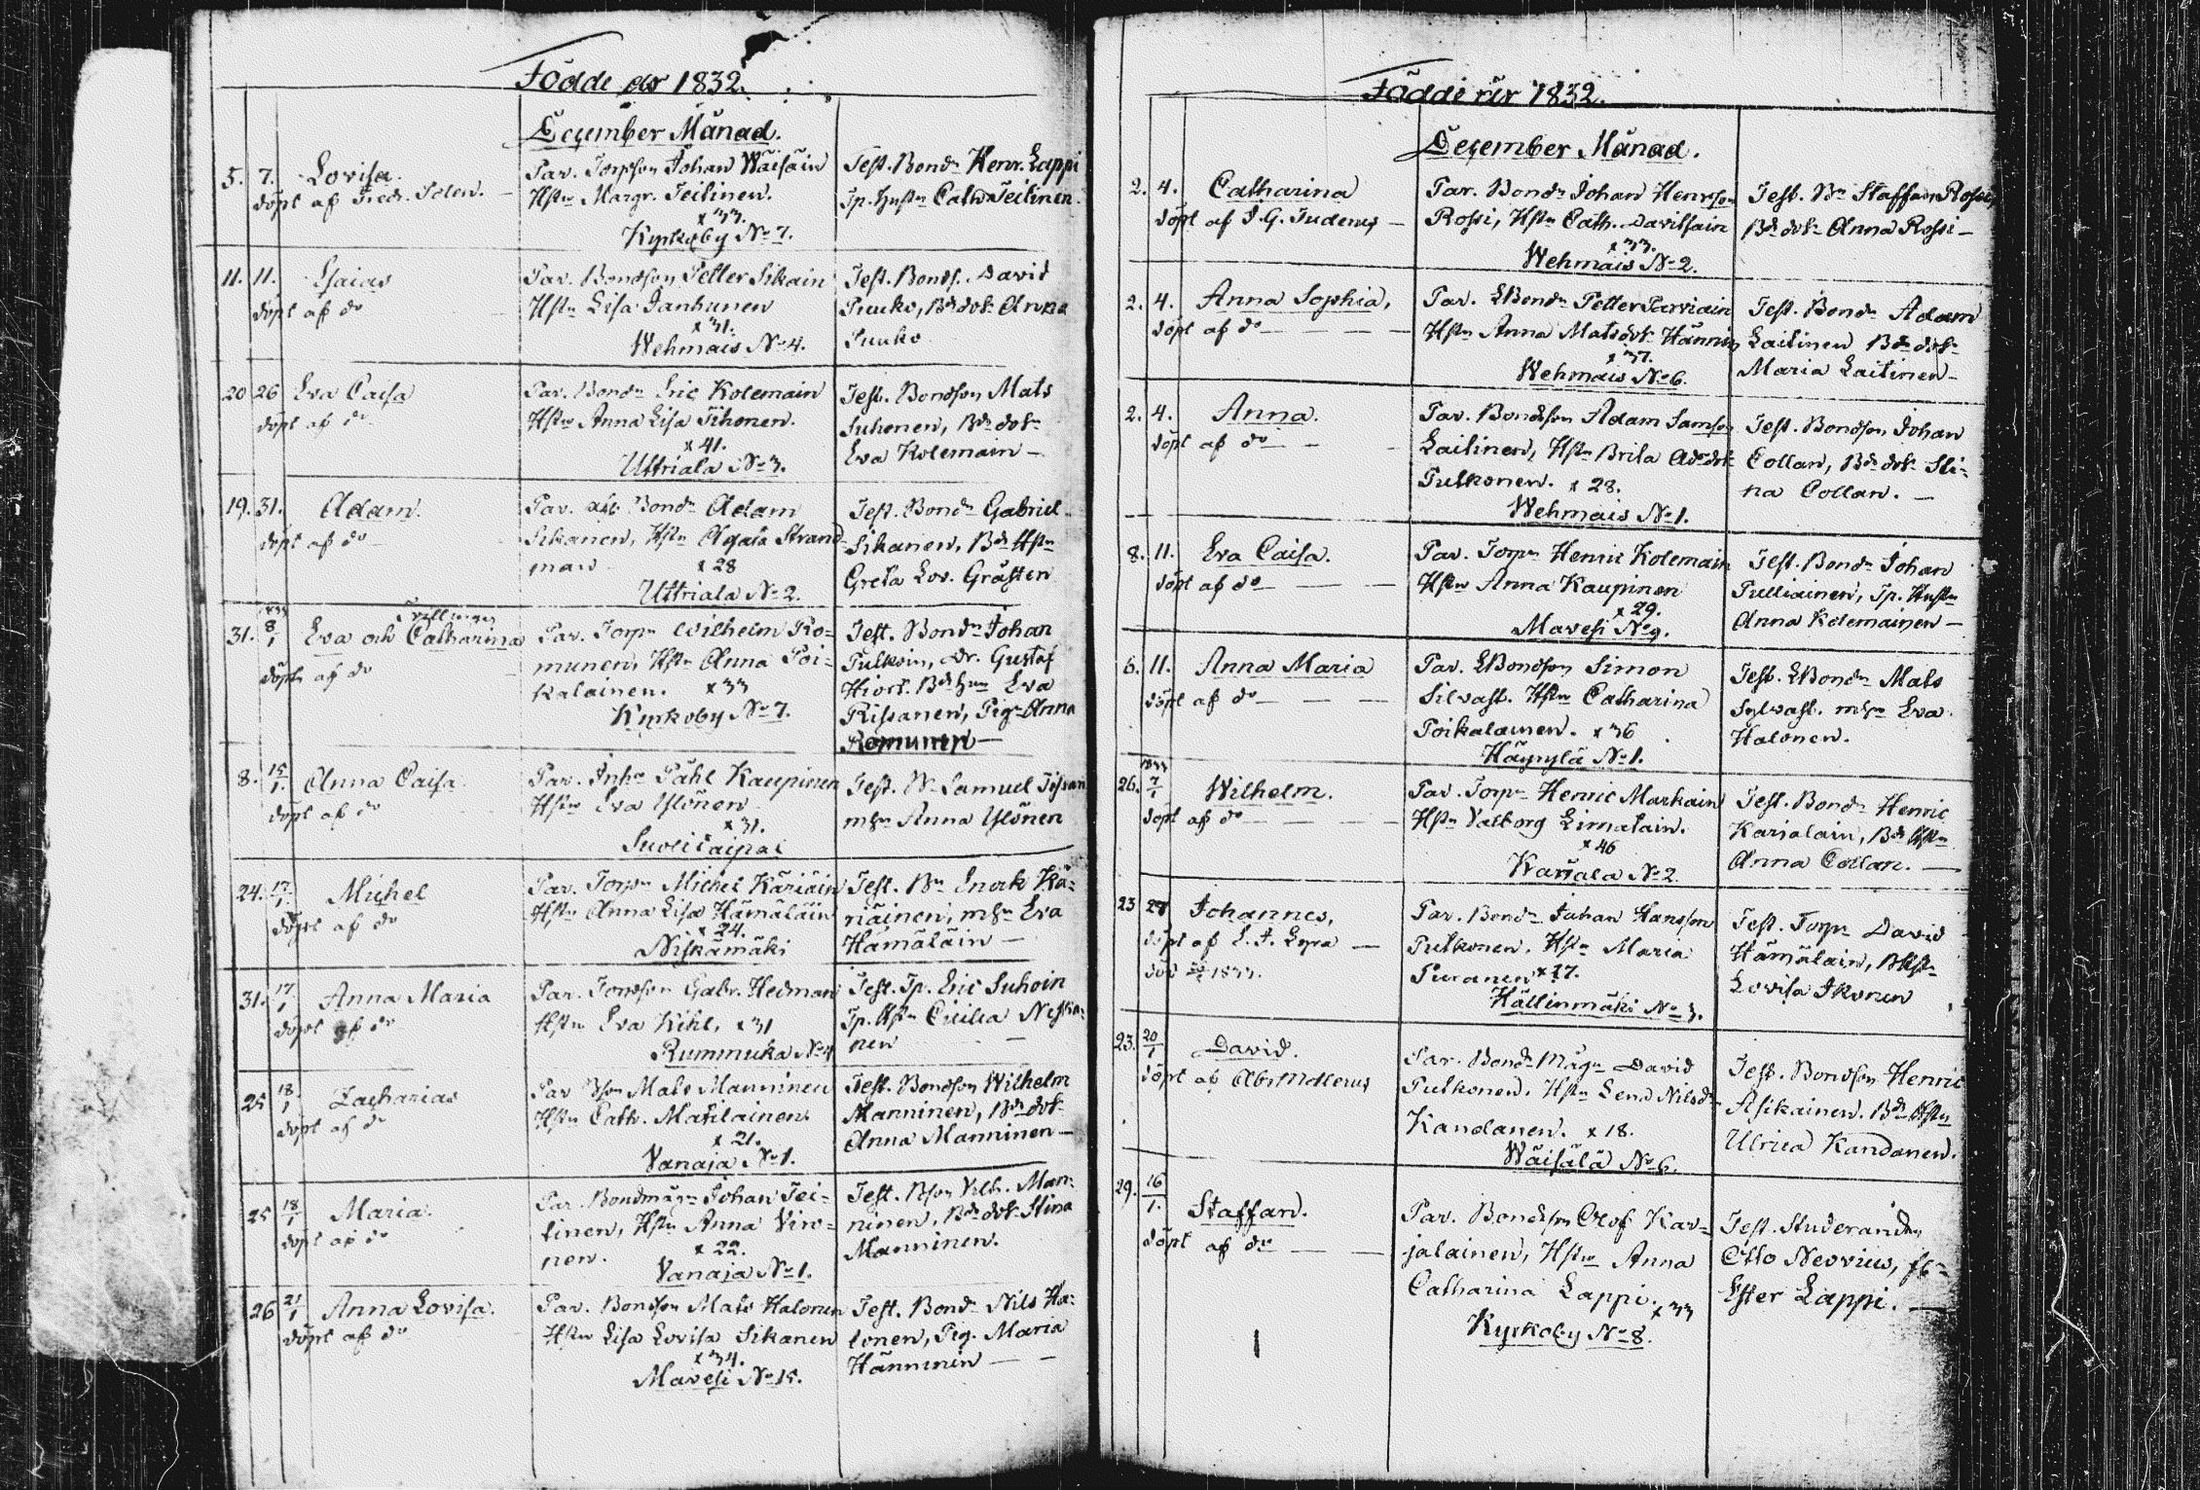 Födde år 1832.
December Månad.
5. 7. Lovisa.
döpt af Fredr. Polen.
Par. Torpson Johan Wäisäin
Hstu Margr. Teilinen.
x 33.
Kyrkoby No 7.
Test. Bondn Henr. Lappi
Tp. hustn Cath. Teilinen.
11. 11. Esaias
döpt af do
Par. Bondson Petter Sikain
Hstu Lisa Janhunen
x 31.
Wehmais No 4.
Test. Bonds. David
Puuko, Bd dotr Anna
Puuko
20 26 Eva Caisa
döpt af do
Par. Bondn Eric Kolemain
Hstu Anna Lisa Tihonen.
x 41.
Uttriala No 3.
Test. Bondson Mats
Suhonen, Bd dotr
Eva Kolemain —
19. 31. Adam.
döpt af do
Par. Bondn Adam
Sikanen, Hstn Agata Strand-
man x 28
Uttriala No 2.
Test. Bondn Gabriel
Sikanen, Bd Hstn
Greta Lov. Gråsten
31. 8/1 1833 Tvillingar
Eva och Catharina
döpt af do
Par. Torpn Wilhelm Ro-
munen, Hstn Anna Poi-
kalainen. x 33
Kyrkoby No 7.
Test. Bondn Johan
Pulkoin, Dr. Gustaf
Hiort. Bd hu Eva
Rissanen, Pig. Anna
Romunen —
8. 15/1 Anna Caisa
döpt af do
Par. Inhn Påhl Kaupinen
Hstu Eva Ylönen
x 31.
Suolitaipal
Test. Bn Samuel
mhn Anna Ylönen
24. 17/1 Michel
döpt af do
Par. Torpn Michel Käriäin
Hstn Anna Lisa Hämäläin
x 24.
Niskamäki
Test. Bn Enock Kä-
riäinen, mhn Eva
Hämäläin —
31. 17/1 Anna Maria
döpt af do
Par. Jordson Gabr. Hedman
Hstn Eva Kihl, x 31
Rummuka No 4
Test. Tp. Eric Suhoin
Tp. Hstn Cicilia Neska-
nen —
25 18/1 Zacharias
döpt af do
Par Bson Mats Manninen
Hstu Cath. Matilainen.
x 21.
Vanaja No 1.
Test. Bondson Wilhelm
Manninen, Bd dotr
Anna Manninen —
25 18/1 Maria.
döpt af do
Par. Bondmågn Johan Tei-
tinen, Hstn Anna Viro-
nen. x 22.
Vanaja No 1.
Test. Bson Vilh. Man-
ninen, Bd dotr Stina
Manninen.
26 21/1 Anna Lovisa.
döpt af do
Par. Bondson Mats Halonen
Hstn Lisa Lovisa Sikanen
x 34.
Mavesi No 15.
Test. Bondn Nils Ha-
lonen, Pig. Maria
Hänninin — —
Födde år 1832.
December Månad.
2. 4. Catharina
döpt af J. G. Judenus —
Par. Bondn Johan Henrson
Rossi, Hstn Cath. Davitsain
x 33.
Wehmais No 2.
Test. Bn Staffan Rossi,
Bd dotr Anna Rossi —
2. 4. Anna Sophia,
döpt af do — — —
Par. LBondn Petter Parviain
Hstn Anna Matsdotr Hännin
x 37.
Wehmais No 6.
Test. Bondn Adam
Laitinen Bd dotr
Maria Laitinen —
2. 4. Anna.
döpt af do — —
Par. Bondson Adam Samson
Laitinen, Hstn Brita Addotr
Pulkonen. x 28.
Wehmais No 1.
Test. Bondson Johan
Collan, Bd dotr Sti-
na Collan. —
8. 11. Eva Caisa.
döpt af do — — —
Par. Torpn Henric Kolemain
Hstn Anna Kaupinen
x 29.
Mavesi No 9.
Test. Bondn Johan
Pulliainen, Tp. Hustn
Anna Kolemainen —
6. 11. Anna Maria
döpt af do — — —
Par. LBondson Simon
Silvast. Hstn Catharina
Poikalainen. x 36
Häyrylä No 1.
Test. LBondn Mats
Sylvast. mhn Eva
Halonen.
1833
26. 7/1 Wilhelm.
döpt af do — — —
Par. Torpn Henric Markain
Hstn Valborg Limatain.
x 46
Karjala No 2.
Test. Bondn Henric
Karjalain, Bd Hstn
Anna Collan. —
23 27 Johannes,
döpt af E. J. Lyra —
död 1833.
Par. Bondn Johan Hansson
Pulkonen. Hstn Maria
Puranen x 27.
Hällinmäki No 3.
Test. Torpn David
Hämälain, Bhstn
Lovisa Ikonen
23. 20/1 David.
döpt af Abr Molerus
Par. Bond Mågn David
Pulkonen. Hstn Lena Nilsdr
Kandanen. x 18.
Wäisälä No 6.
Test. Bondson Henric
Asikainen. Bd Hstn
Ulrica Kandanen.
29. 16/1. Staffan.
döpt af do — —
Par. Bondson Olof Kar-
jalainen, Hstn Anna
Catharina Lappi.
x 33
Kyrkoby No 8.
Test. Studeranden
Otto Nevvius,
Ester Lappi. —